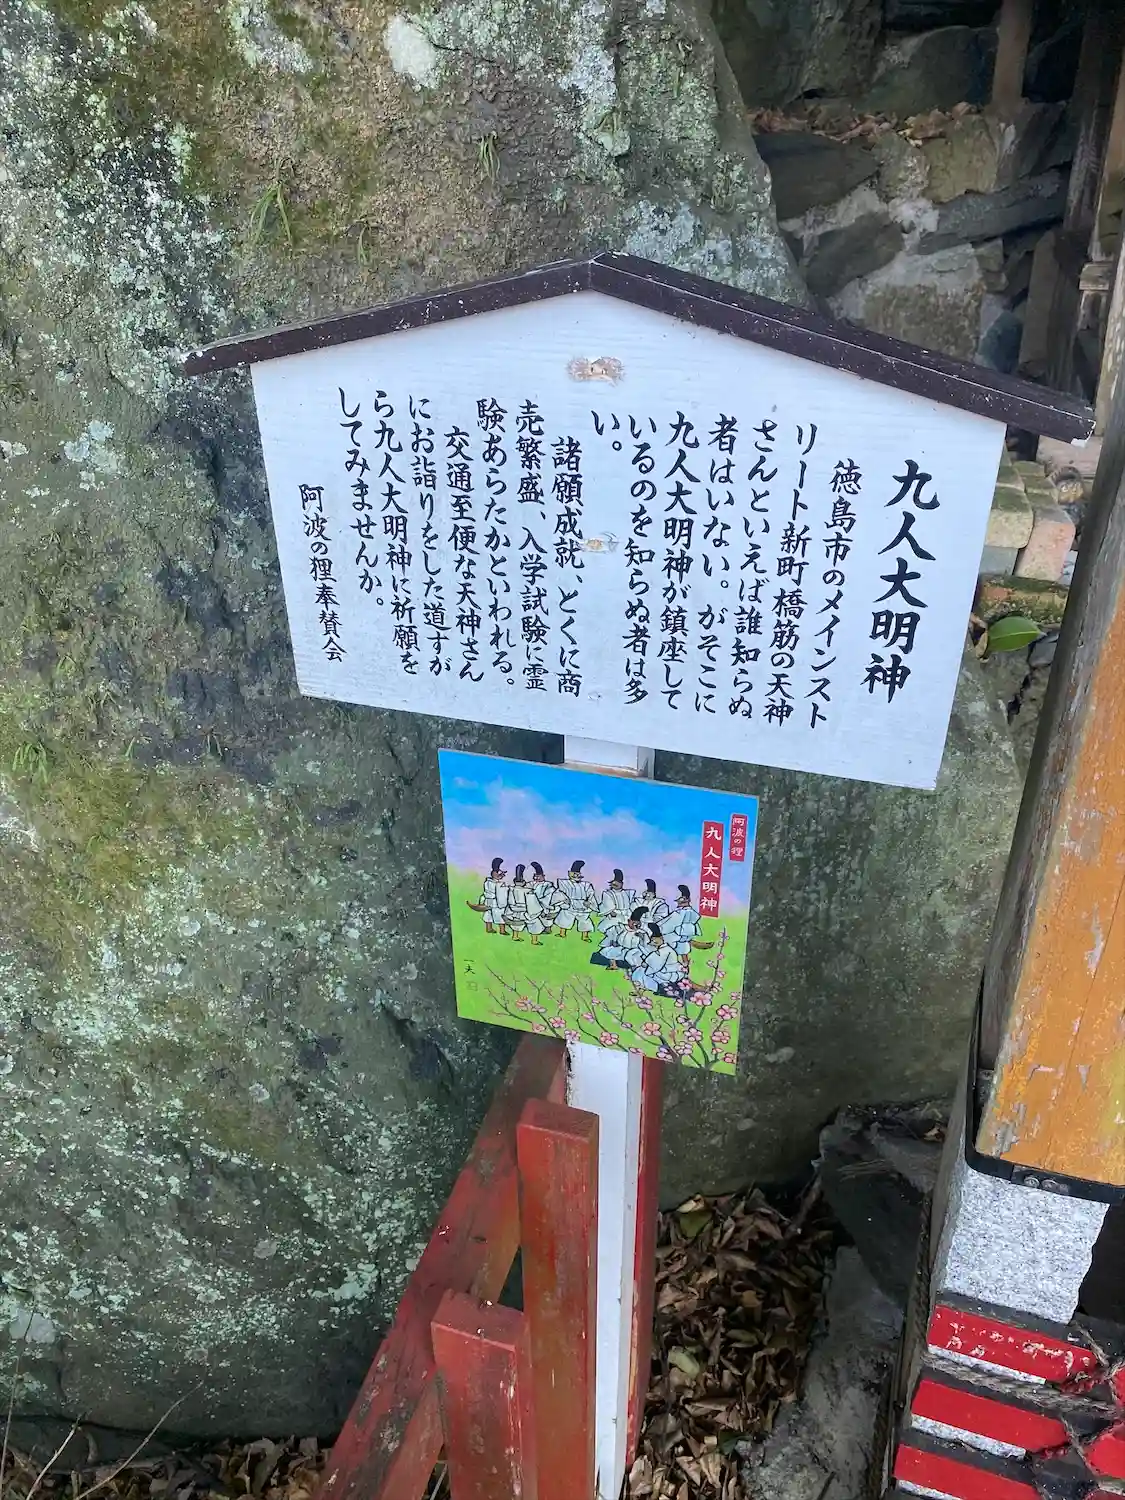 九人大明神
徳島市のメインスト
リート新町橋筋の天神
さんといえば誰知らぬ
者はいない。がそこに
九人大明神が鎮座して
いるのを知らぬ者は多
い。
諸願成就、とくに商
売繁盛、入学試験に霊
験あらたかといわれる。
交通至便な天神さん
にお詣りをした道すが
ら九人大明神に祈願を
してみませんか。
阿波の狸奉賛会
阿波の狸
九人大明神
一夫